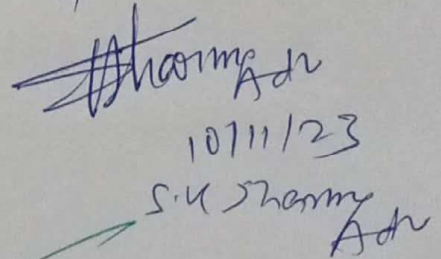 Sharma Adv
10/11/23
S.K Sharma
Adv